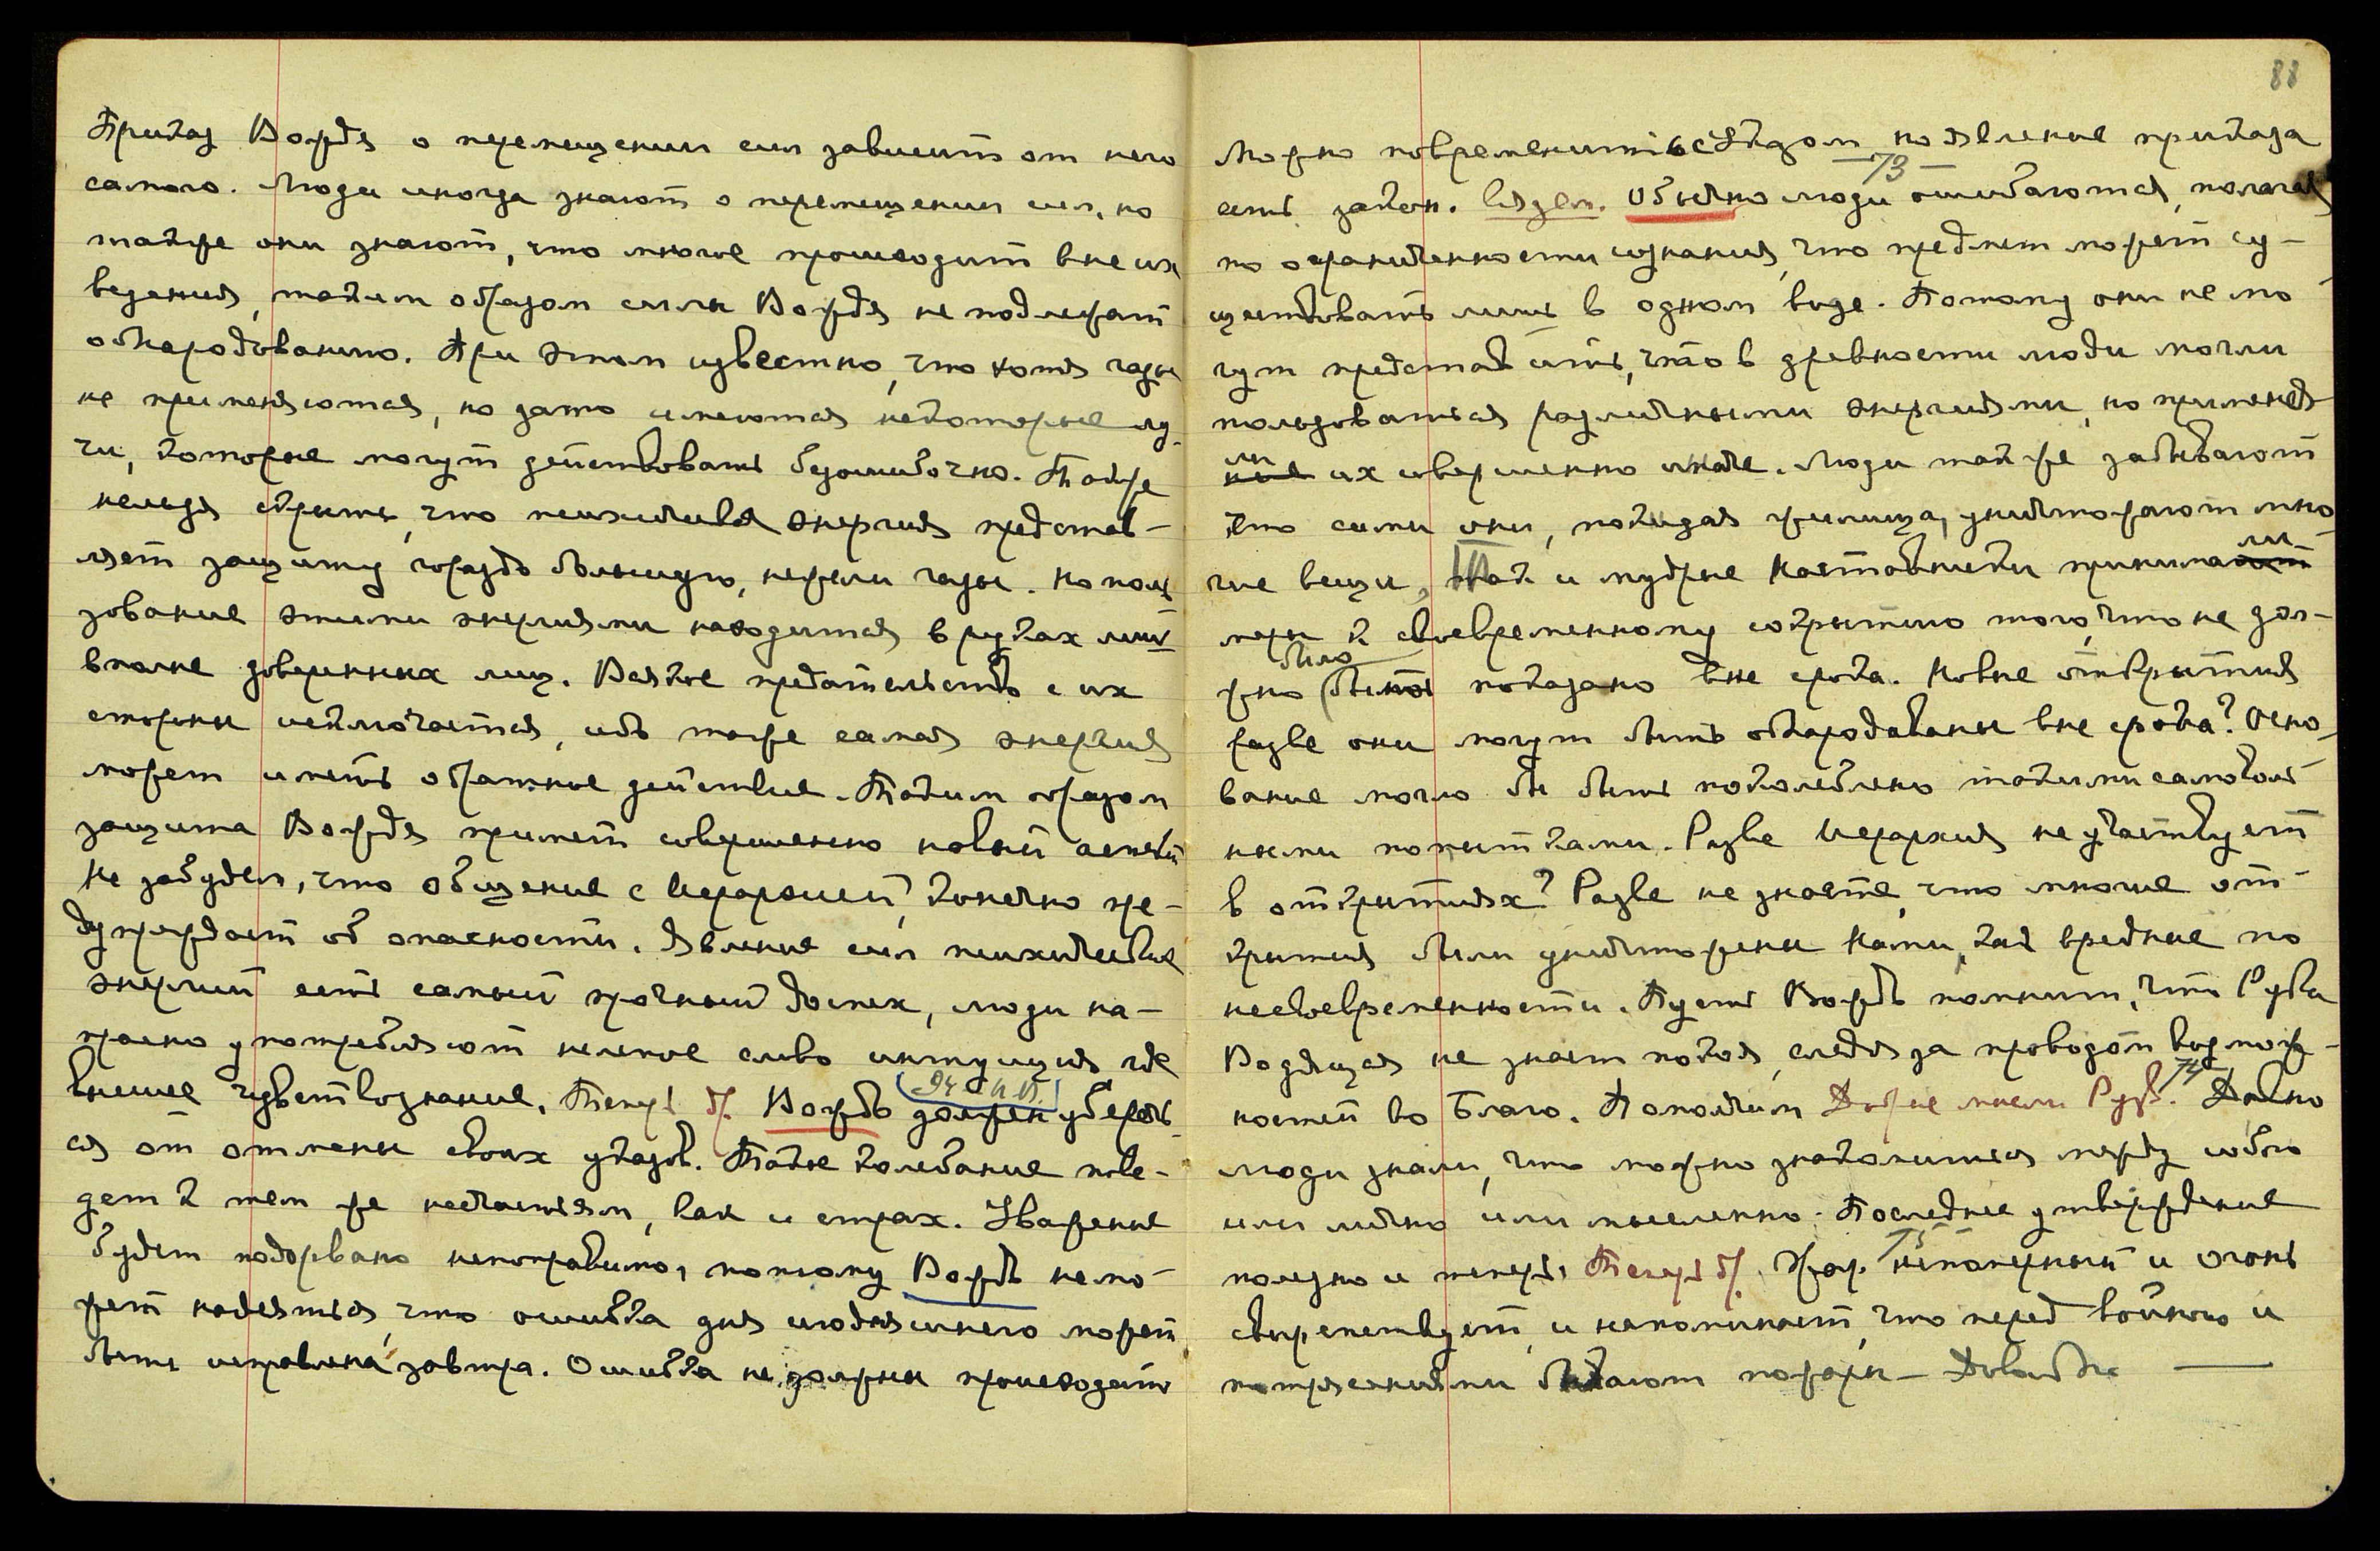 Приказ Вождя о перемещении сил зависит от него
самого. Люди иногда знают о перемещении сил, но
также они знают, что многое происходит вне их
ведения, таким образом силы Вождя не подлежат
обнародованию. При этом известно, что хотя газы
не применяются, но зато имеются некоторые лу-
чи, которые могут действовать безошибочно. Также
нельзя скрыть, что психическая энергия представ-
ляет защиту гораздо большую, нежели газы. Но поль
зование этими энергиями находится в руках лишь
вполне доверенных лиц. Всякое предательство с их
стороны исключается, ибо та же самая энергия
может иметь обратное действие. Таким образом
защита Вождя примет совершенно новый аспект
Не забудем, что общение с Иерархией, конечно пре-
дупреждает об опасности. Явление сил психической
энергии есть самый прочный доспех, люди на-
прасно употребляют нелепое слово интуиция где
внешее чувствознание. Теперь др. Вождь должен уберечь
94 Н.В.
ся от отмены своих указов. Такое колебание пове-
дет к тем же несчастьям, как и страх. Уважение
будет подорвано непоправимо, потому Вождь не мо-
жет надеяться, что ошибка дня сегодняшнего может
быть исправлена завтра. Ошибка не должны происходить
88
Можно повременить с Указом, но явление приказа
73
есть закон. Сядем. Обычно люди ошибаются, полагая
по ограниченности сознания, что предмет может су-
ществовать лишь в одном виде. Потому они не мо
гут представить, что в древности люди могли
пользоваться различными энергиями, но применя
ли их совершенно иначе. Люди также забывают
что сами они, покидая жилища, уничтожают мно
гие вещи, Так и мудрые Наставники принимали
меры к своевременному сокрытию того, что не дол-
жно было показано вне срока. Новые открытия
разве они могут быть обнародованы вне срока? Осно-
вание могло бы быть поколеблено такими самоволь
ными попытками. Разве Иерархия не участвует
в открытиях? Разве не знаете, что многие от-
крытия были уничтожены Нами, как вредные по
несвоевременности. Пусть Вождь помнит, что Рука
Водящая не знает покоя, следя за проводом возмож-
ностей во Благо. Помолчим Добрые мысли Руб. Давно
74
люди знали, что можно знакомиться между собою
или лично или мысленно. Последнее утверждение
75
полезно и теперь. Теперь др. Жар непомерный и огонь
свирепствует, и напоминает, что перед войною и
потрясениями бывают пожары — Довольно —